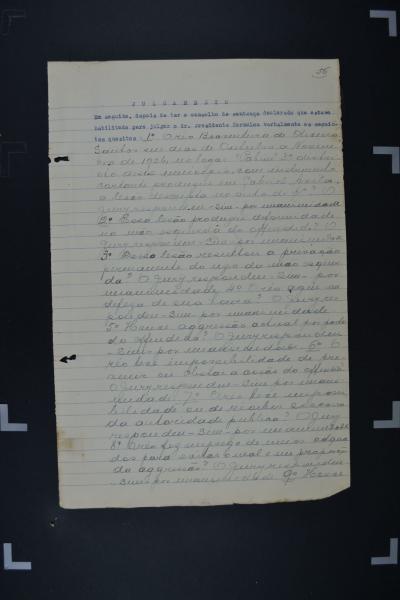 56
JULGAMENTO
Em seguida, depois de ter o conselho de sentença declarado que estava
habilitado para julgar o dr. presidente formulou verbalmente os seguin-
tes quesitos 1º O réo Boaventura de Oliveira
Santos em dias de Outubro a Novem-
bro de 1926, no logar
cto deste municipio, com instrumento
cortante produziu em
a lesão descripta no auto de 5? O
Jury respondeu - Sim - por unanimidade
2º Essa lesão produziu deformidade
na mão esquerda do offendido? O
Jury respondeu - Sim - por unanimidade
3º Dessa lesão resultou a privação
permanente do uso da mão esquer-
da? O Jury respondeu - Sim - por
unanimidade 4º O réo agiu na
defeza de sua honra? O Jury res-
pondeu - Sim por unanimidade
5º Houve aggressão actual por parte
do offendido? O Jury respondeu
- Sim - por unanimidade. 6º O
réo teve impossibilidade de pre-
venir ou obstar a acção do offendido?
O Jury respondeu - Sim por unani-
midade. 7º O réo teve impossi-
bilidade ou de receber soccorro
da autoridade publica? O Jury
respondeu - Sim - por unanimidade
8º O réo fez emprego de meios adqua
dos para evitar o mal e em proporção
da aggressão? O Jury respondeu
- Sim - por unanimidade 9º Houve